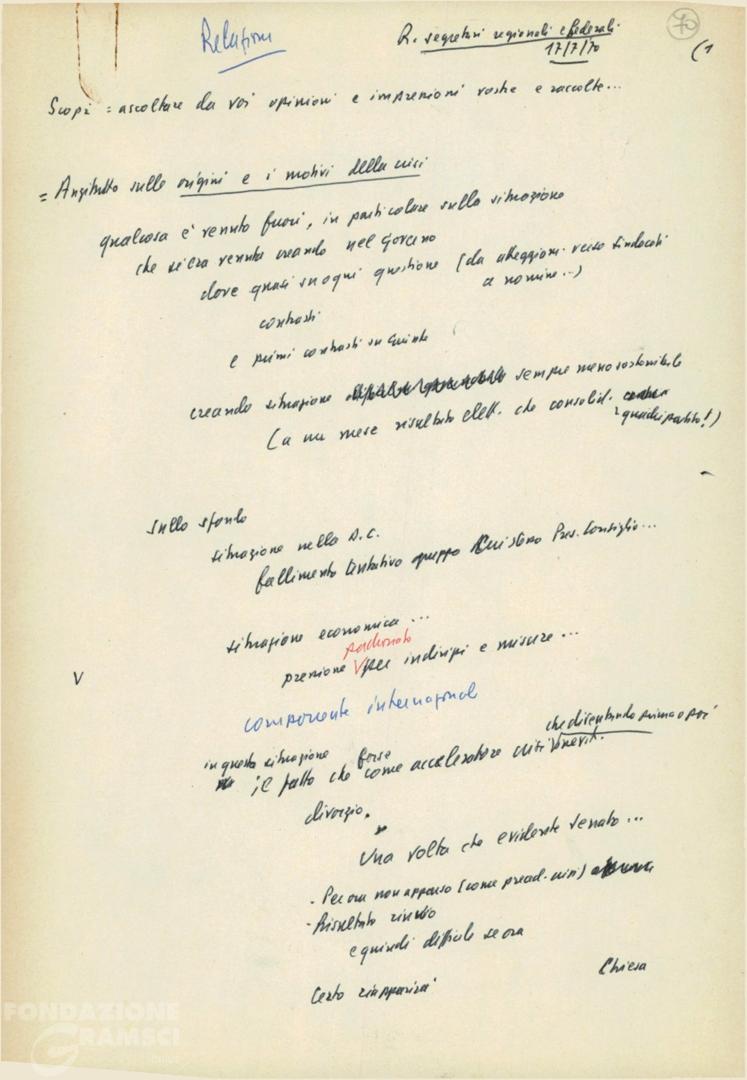 Relazioni
R. segretari regionali e federali
17/7/70
70
(1
Scopi = ascoltare da voi opinioni e impressioni vostre e raccolte...
= Anzitutto sulle origini e i motivi della crisi
qualcosa è venuto fuori, in particolare sulla situazione
che si era venuta creando nel Governo
dove quasi su ogni questione (da atteggiam. verso sindacati
a nomine...)
contrasti
e primi contrasti su giunte
creando situazione sempre meno sostenibile
(a un mese risultato elett. che consolid.
quadripartito!)
sullo sfondo
situazione nella D.C.
fallimento tentativo gruppo Pres. Consiglio...
situazione economica...
padronato
pressione per indirizzi e misure...
V
componente internazionale
in questa situazione forse
che diventando prima o poi
il fatto che come acceleratore crisi inevit.
divorzio.
Una volta che evidente Senato...
- Per ora non appenso (come pread. crisi)
- Risultato rinvio
e quindi difficile se ora
Chiesa
Certo riapparirà
FONDAZIONE
GRAMSCI